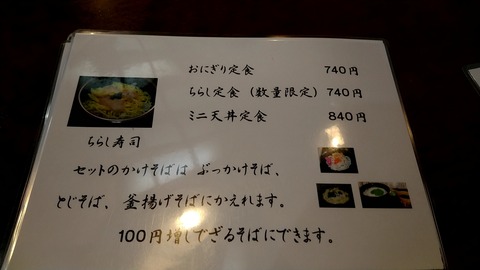 おにぎり定食 740円
ちらし定食（数量限定）740円
ミニ天丼定食 840円
ちらし寿司
セットのかけそばは ぶっかけそば、
とじそば、釜揚げそばにかえれます。
100円増しでざるそばにできます。